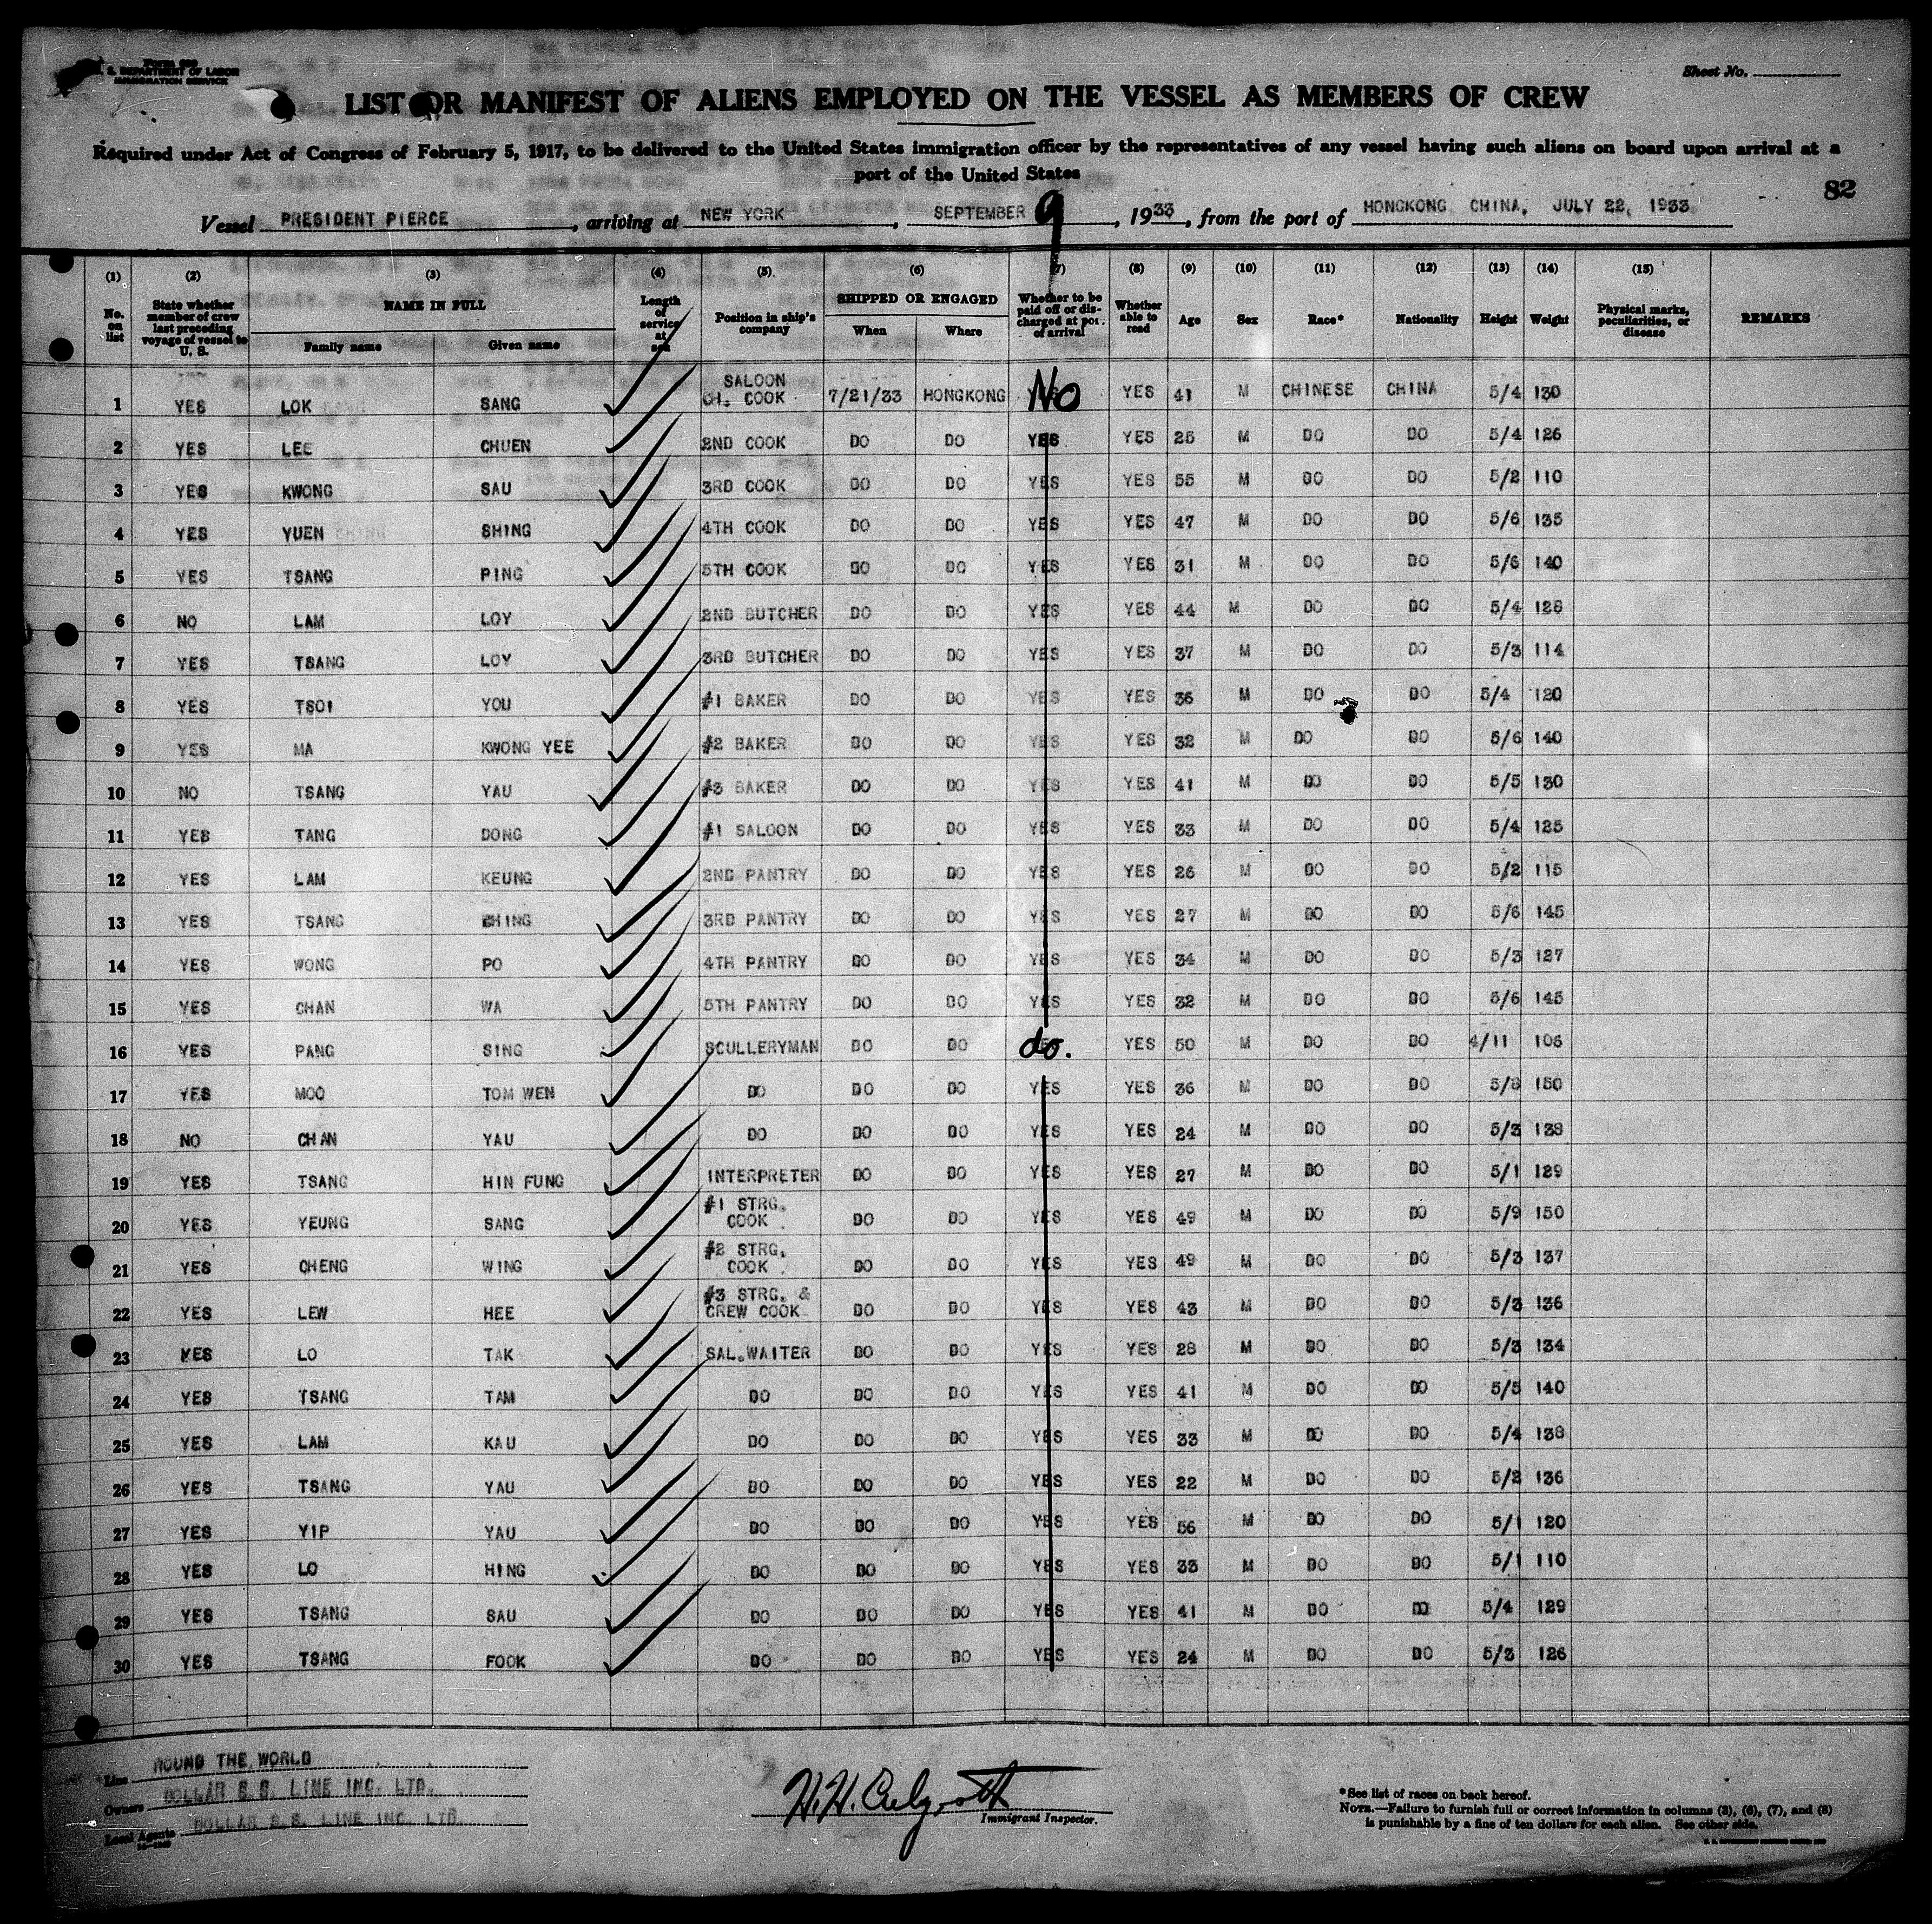 Form 689
U. S. DEPARTMENT OF LABOR
IMMIGRATION SERVICE
Sheet No.
LIST OR MANIFEST OF ALIENS EMPLOYED ON THE VESSEL AS MEMBERS OF CREW
Required under Act of Congress of February 5, 1917, to be delivered to the United States immigration officer by the representatives of any vessel having such aliens on board upon arrival at a
port of the United States
82
Vessel PRESIDENT PIERCE, arriving at NEW YORK, SEPTEMBER 9, 1933, from the port of HONGKONG CHINA, JULY 22, 1933
(1) (2) (3) (4) (5) (6) (7) (8) (9) (10) (11) (12) (13) (14) (15)
No. on list State whether member of crew last preceding voyage of vessel to U. S. NAME IN FULL Family name Given name Length of service at sea Position in ship's company SHIPPED OR ENGAGED When Where Whether to be paid off or discharged at port of arrival Whether able to read Age Sex Race* Nationality Height Weight Physical marks, peculiarities, or disease REMARKS
1 YES LOK SANG SALOON CH. COOK 7/21/33 HONGKONG No YES 41 M CHINESE CHINA 5/4 130
2 YES LEE CHUEN 2ND COOK DO DO YES YES 25 M DO DO 5/4 126
3 YES KWONG SAU 3RD COOK DO DO YES YES 55 M DO DO 5/2 110
4 YES YUEN SHING 4TH COOK DO DO YES YES 47 M DO DO 5/6 135
5 YES TSANG PING 5TH COOK DO DO YES YES 31 M DO DO 5/6 140
6 NO LAM LOY 2ND BUTCHER DO DO YES YES 44 M DO DO 5/4 128
7 YES TSANG LOY 3RD BUTCHER DO DO YES YES 37 M DO DO 5/3 114
8 YES TSOI YOU #1 BAKER DO DO YES YES 36 M DO DO 5/4 120
9 YES MA KWONG YEE #2 BAKER DO DO YES YES 32 M DO DO 5/6 140
10 NO TSANG YAU #3 BAKER DO DO YES YES 41 M DO DO 5/5 130
11 YES TANG DONG #1 SALOON DO DO YES YES 33 M DO DO 5/4 125
12 YES LAM KEUNG 2ND PANTRY DO DO YES YES 26 M DO DO 5/2 115
13 YES TSANG CHING 3RD PANTRY DO DO YES YES 27 M DO DO 5/6 145
14 YES WONG PO 4TH PANTRY DO DO YES YES 34 M DO DO 5/3 127
15 YES CHAN WA 5TH PANTRY DO DO YES YES 32 M DO DO 5/6 145
16 YES PANG SING SCULLERYMAN DO DO do. YES 50 M DO DO 4/11 106
17 YES MOO TOM WEN DO DO DO YES YES 36 M DO DO 5/8 150
18 NO CHAN YAU DO DO DO YES YES 24 M DO DO 5/3 138
19 YES TSANG HIN FUNG INTERPRETER DO DO YES YES 27 M DO DO 5/1 129
20 YES YEUNG SANG #1 STRG. COOK DO DO YES YES 49 M DO DO 5/9 150
21 YES CHENG WING #2 STRG. COOK DO DO YES YES 49 M DO DO 5/3 137
22 YES LEW HEE #3 STRG. & CREW COOK DO DO YES YES 43 M DO DO 5/3 136
23 YES LO TAK SAL.WAITER DO DO YES YES 28 M DO DO 5/3 134
24 YES TSANG TAM DO DO DO YES YES 41 M DO DO 5/5 140
25 YES LAM KAU DO DO DO YES YES 33 M DO DO 5/4 138
26 YES TSANG YAU DO DO DO YES YES 22 M DO DO 5/2 136
27 YES YIP YAU DO DO DO YES YES 56 M DO DO 5/1 120
28 YES LO HING DO DO DO YES YES 33 M DO DO 5/1 110
29 YES TSANG SAU DO DO DO YES YES 41 M DO DO 5/4 129
30 YES TSANG FOOK DO DO DO YES YES 24 M DO DO 5/3 126
Line ROUND THE WORLD
Owners DOLLAR S.S. LINE INC. LTD.
Local Agents DOLLAR S.S. LINE INC. LTD.
Immigrant Inspector.
*See list of races on back hereof.
NOTE.—Failure to furnish full or correct information in columns (3), (6), (7), and (8)
is punishable by a fine of ten dollars for each alien. See other side.